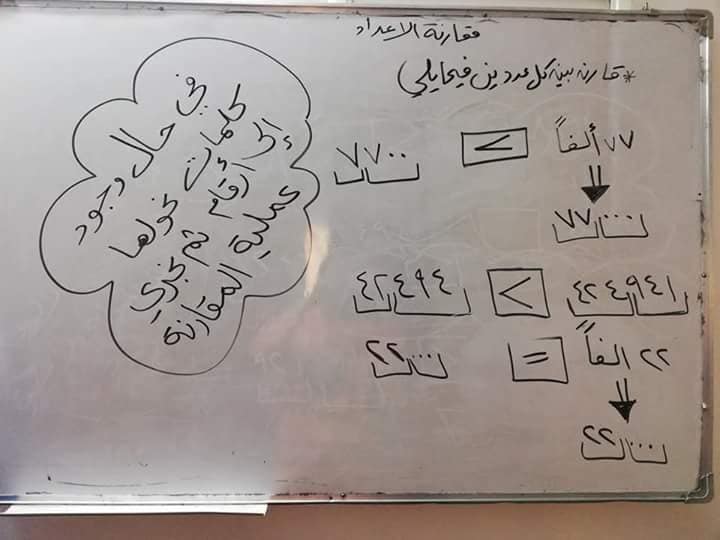 مقارنة الاعداد
* قارن بين كل عددين فيما يلي
٧٧ ألفاً > ٧٧٠٠
٧٧٠٠٠
٤٢٤٩٤١ > ٤٢٤٩٤
٢٢ الفاً = ٢٢٠٠٠
٢٢٠٠٠
في حال وجود
كلمات نحولها
إلى أرقام ثم نجري
عملية المقارنة